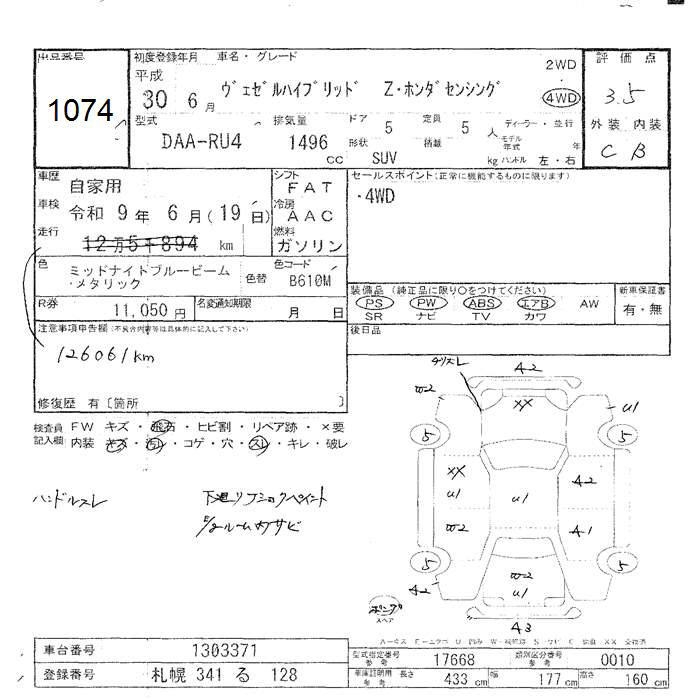 出品番号 初度登録年月 車名・グレード 評価点
1074
平成 30 6月 ヴェゼルハイブリッド Z・ホンダセンシング 2WD 4WD
3.5
型式 DAA-RU4 排気量 1496 cc ドア 5 定員 5 人 ディーラー・並行
形状 SUV 積載 kg モデル年式 年 ハンドル 左・右
外装 内装
C B
車歴 自家用 シフト FAT
車検 令和 9年 6月(19日) 冷房 AAC
走行 12万5千894 km 燃料 ガソリン
セールスポイント(正常に機能するものに限ります)
・4WD
色 ミッドナイトブルービーム・メタリック 色替 色コード B610M
R券 11,050円 名変通知期限 月 日
装備品 (純正品に限り○をつけてください) 新車保証書
PS PW ABS エアB AW 有・無
SR ナビ TV カワ
後日品
注意事項申告欄(不具合内容等は具体的に記入して下さい)
126061km
修復歴 有〔箇所 〕
検査員記入欄 FW キズ・飛石・ヒビ割・リペア跡・×要
内装 キズ・汚れ・コゲ・穴・スレ・キレ・破レ
ハンドルスレ
A2
W2
XX
U1
5
5
XX
U1
U1
A2
W2
A1
5
5
W2
U1
A2
スペア
A3
車台番号 1303371
登録番号 札幌 341 る 128
型式指定番号 参考 17668 類別区分番号 参考 0010
車庫証明用 参考 長さ 433 cm 幅 177 cm 高さ 160 cm